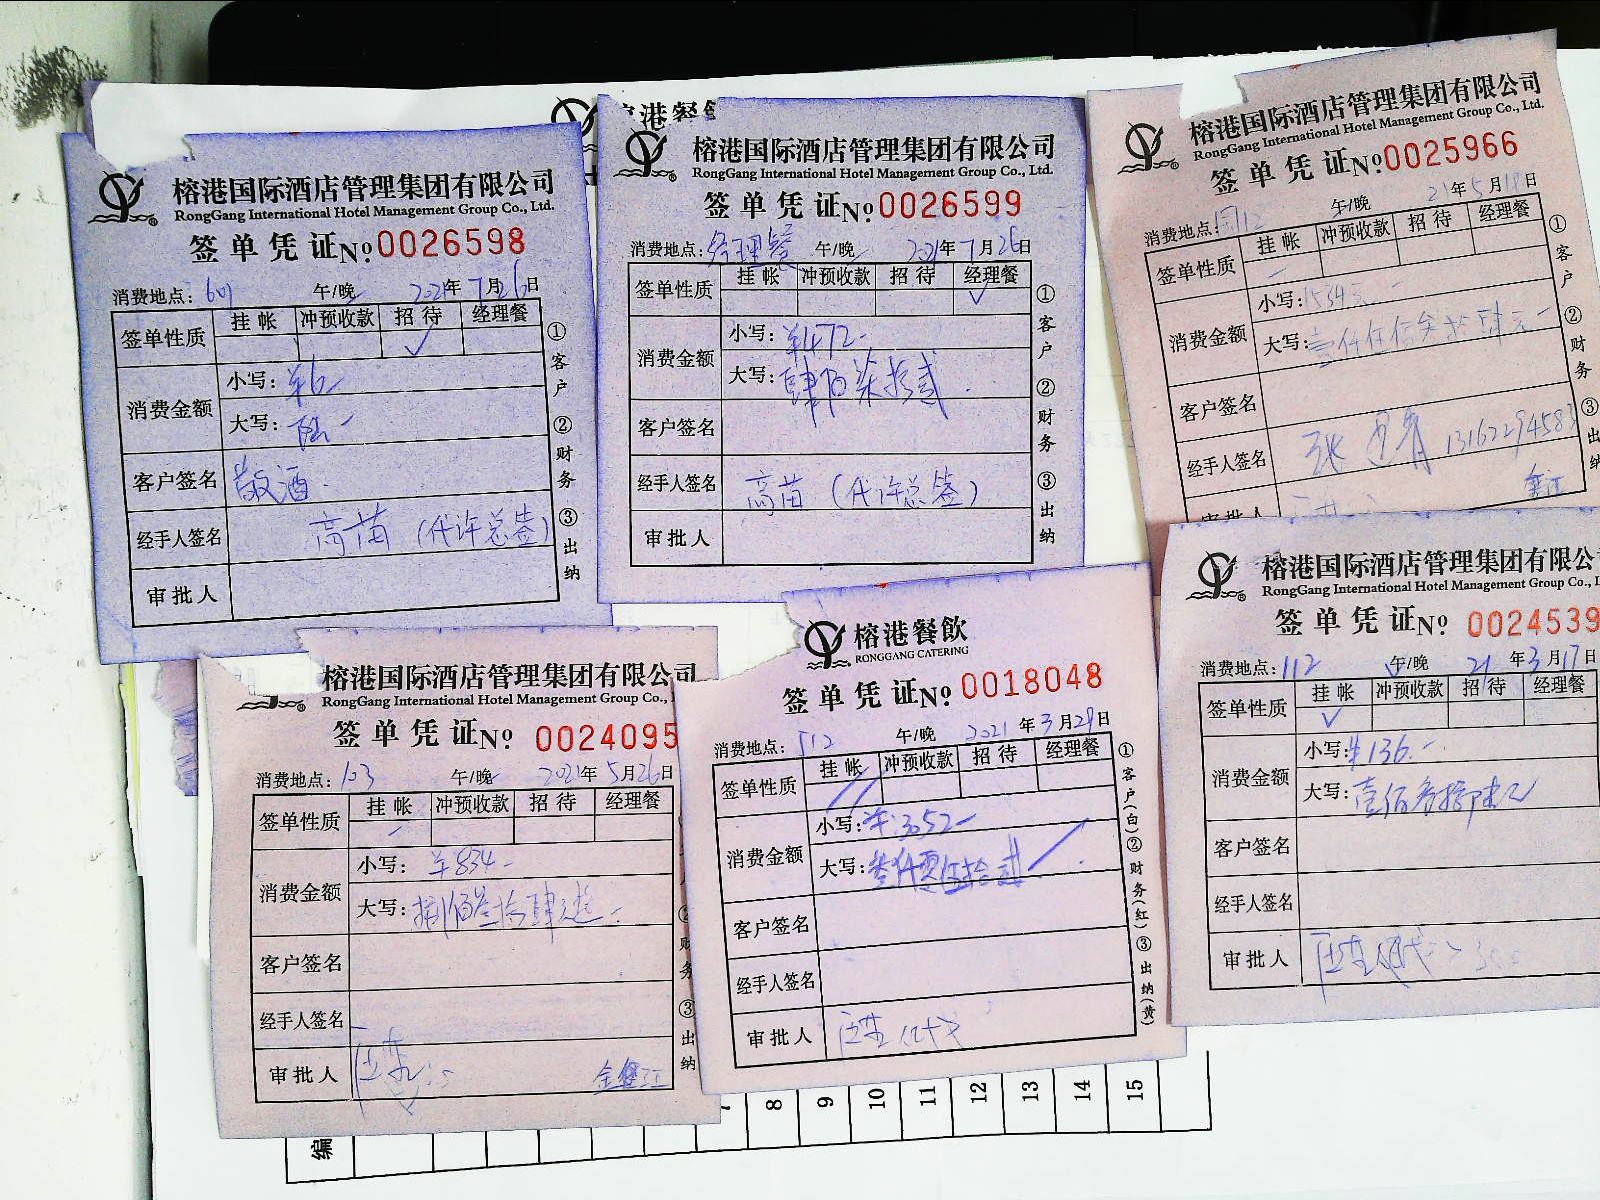 榕港国际酒店管理集团有限公司
RongGang International Hotel Management Group Co., Ltd.
签单凭证No.0026598
消费地点: 601 午/晚 2021年7月26日
签单性质 挂帐 冲预收款 招待 经理餐
✓
消费金额 小写: ¥6-
大写: 陆-
客户签名 散酒
经手人签名 高苗(代许总签)
审批人
①客户 ②财务 ③出纳
榕港餐飲
榕港国际酒店管理集团有限公司
RongGang International Hotel Management Group Co., Ltd.
签单凭证No.0026599
消费地点: 经理餐 午/晚 2021年7月26日
签单性质 挂帐 冲预收款 招待 经理餐
✓
消费金额 小写: ¥472-
大写: 肆佰柒拾贰
客户签名
经手人签名 高苗(代许总签)
审批人
①客户 ②财务 ③出纳
榕港国际酒店管理集团有限公司
RongGang International Hotel Management Group Co., Ltd.
签单凭证No.0025966
消费地点: 午/晚 21年5月18日
签单性质 挂帐 冲预收款 招待 经理餐
消费金额 小写: 1534元-
大写: 壹仟伍佰叁拾肆元-
客户签名
经手人签名 13162294583
审批人
①客户 ②财务 ③出纳
榕港国际酒店管理集团有限公司
RongGang International Hotel Management Group Co., L
签单凭证No. 0024095
消费地点: 103 午/晚 2021年5月26日
签单性质 挂帐 冲预收款 招待 经理餐
消费金额 小写: ¥834-
大写: 捌佰叁拾肆元整-
客户签名
经手人签名
审批人
财务 ③出纳
榕港餐飲
RONGGANG CATERING
签单凭证No.0018048
消费地点: 512 午/晚 2021年3月29日
签单性质 挂帐 冲预收款 招待 经理餐
消费金额 小写: ¥3052-
大写: 叁仟零伍拾贰
客户签名
经手人签名
审批人
①客户(白) ②财务(红) ③出纳(黄)
榕港国际酒店管理集团有限公
RongGang International Hotel Management Group Co., L
签单凭证No. 0024539
消费地点: 112 午/晚 21年3月17日
签单性质 挂帐 冲预收款 招待 经理餐
✓
消费金额 小写: ¥136.-
大写: 壹佰叁拾陆元
客户签名
经手人签名
审批人
编 8 9 10 11 12 13 14 15